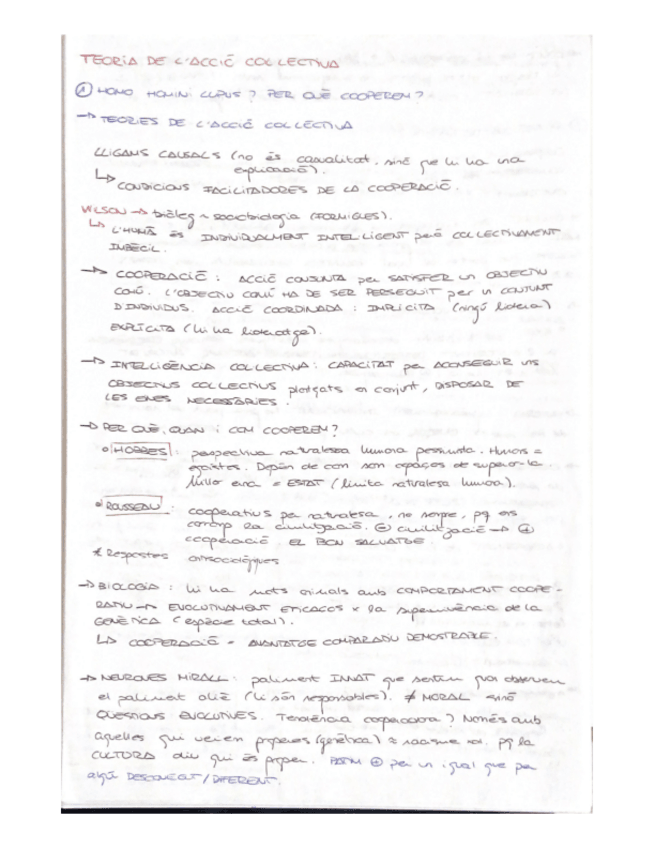 TEORIA DE L'ACCIÓ COL·LECTIVA
① HOMO HOMINI LUPUS? PER QUÈ COOPEREM?
→ TEORIES DE L'ACCIÓ COL·LECTIVA
LLIGAMS CAUSALS (no és casualitat, sinó que hi ha una
explicació).
↳ CONDICIONS FACILITADORES DE LA COOPERACIÓ.
WILSON → biòleg ~ sociobiologia (FORMIGUES).
↳ L'HUMÀ ÉS INDIVIDUALMENT INTEL·LIGENT però COL·LECTIVAMENT
IMBÈCIL.
→ COOPERACIÓ: ACCIÓ CONJUNTA per SATISFER UN OBJECTIU
COMÚ. L'OBJECTIU COMÚ HA DE SER PERSEGUIT per un CONJUNT
D'INDIVIDUS. ACCIÓ COORDINADA: IMPLÍCITA (ningú lidera)
EXPLÍCITA (hi ha lideratge).
→ INTEL·LIGÈNCIA COL·LECTIVA: CAPACITAT per ACONSEGUIR UNS
OBJECTIUS COL·LECTIUS pletjats en conjunt, DISPOSAR DE
LES EINES NECESSÀRIES.
→ PER QUÈ, QUAN i COM COOPEREM?
HOBBES: perspectiva naturalesa humana pessimista. Humans =
egoistes. Depèn de com som capaços de superar-la.
Millor eina = ESTAT (limita naturalesa humana).
ROUSSEAU: cooperatius per naturalesa, no sempre, pq ens
corromp la civilització. ⊖ civilització → ⊕
cooperació EL BON SALVATGE.
* Respostes
→ BIOLOGIA: hi ha molts animals amb COMPORTAMENT COOPE-
RATIU → EVOLUTIVAMENT EFICAÇOS x la supervivència de la
GENÈTICA (espècie total).
↳ COOPERACIÓ = AVANTATGE COMPARATIU DEMOSTRABLE.
→ NEURONES MIRALL: patiment INNAT que sentim quan observem
el patiment aliè (hi són responsables). ≠ MORAL sinó
QÜESTIONS EVOLUTIVES. Tendència cooperadora? Només amb
aquelles qui veiem properes (genètica) pq la
CULTURA diu qui és proper. PATIM ⊕ per un igual que per
algú DESCONEGUT/DIFERENT.